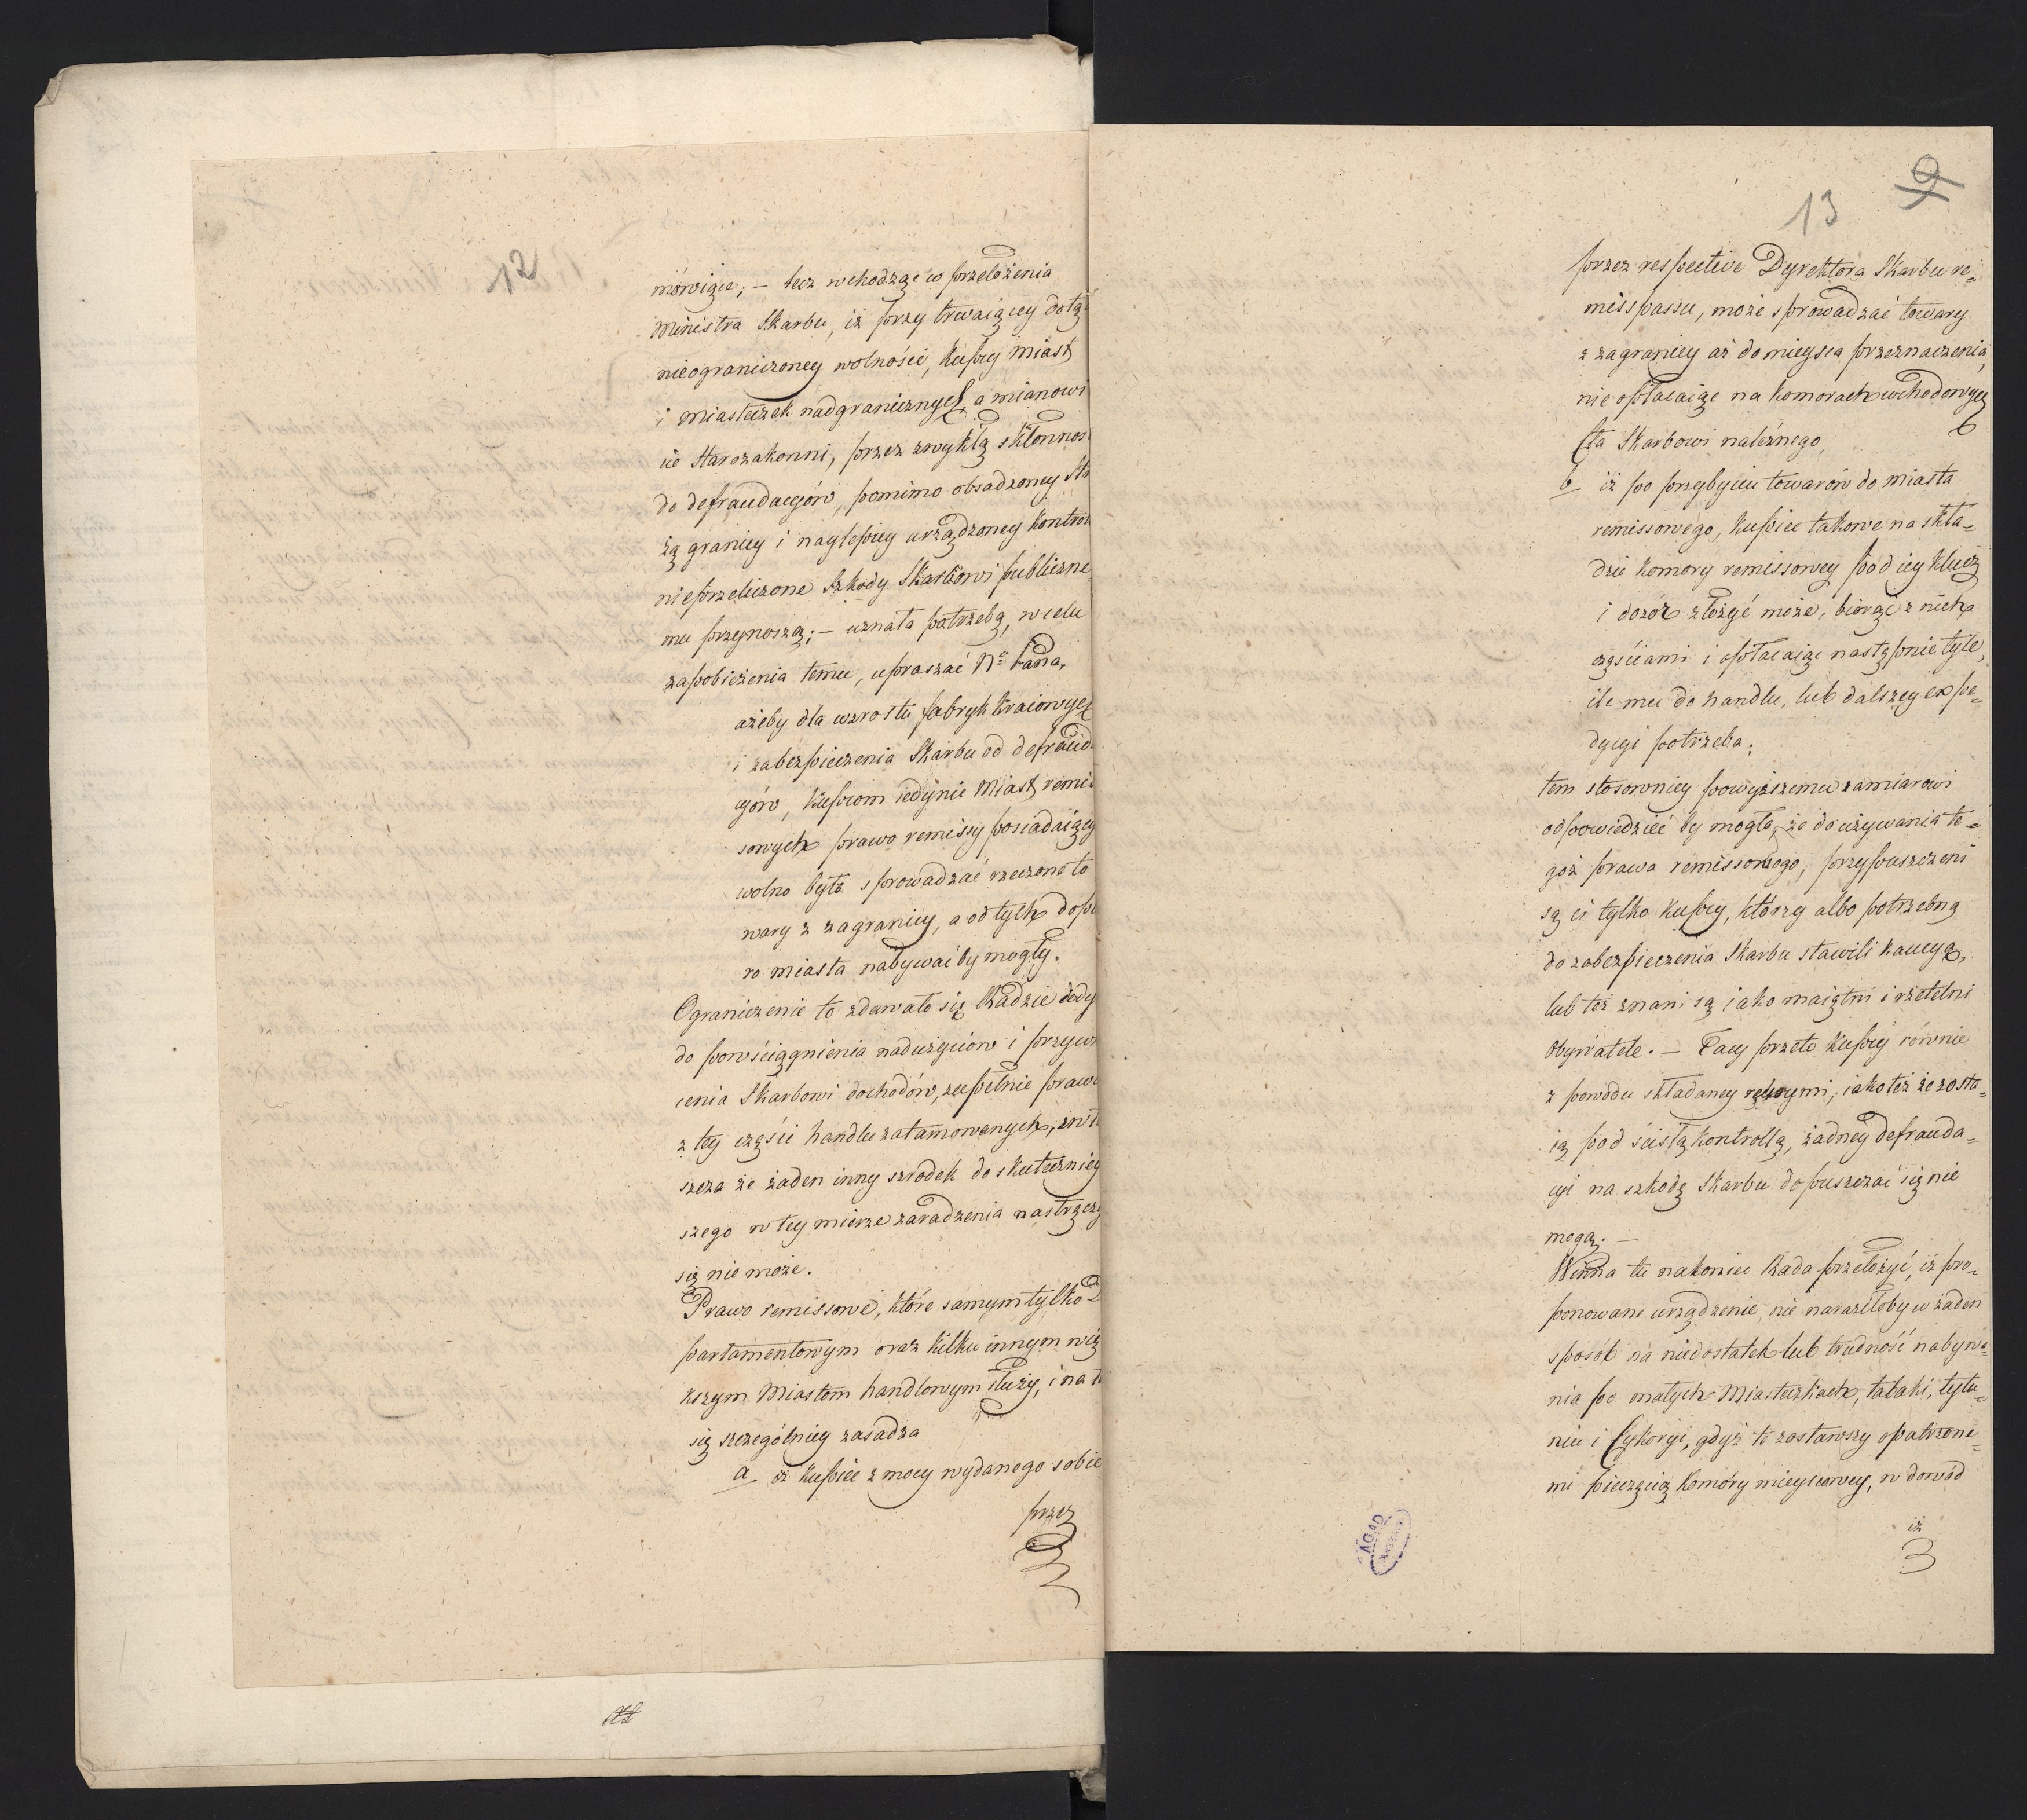 12
mówiące; – lecz wchodząc w przełożenia
Ministra Skarbu, iż przy trwaiącey dotą
nieograniczoney wolności, Kupcy miast
i miasteczek nadgranicznych, a mianowi
cie Starozakonni, przez zwykłą skłonnoś
do defraudacyów, pomimo obsadzoney Str
żą granicy i naylepiey urządzoney kontrol
nieprzeliczone Szkody Skarbowi publiczne
mu przynoszą; – uznała potrzebą, w celu
zapobieżenia temu, upraszać Nr Pana,
ażeby dla wzrostu fabryk kraiowych
i zabezpieczenia Skarbu od defraud
cyów, Kupcom iedynie Miast remis
sowych prawo remissy posiadaiący
wolno było sprowadzać rzeczone to
wary z zagranicy, a od tych dopi
ro miasta nabywać by mogły.
Ograniczenie to zdawało się Radzie iedy
do powściągnienia nadużyciów i przyw
cenia Skarbowi dochodów, zupełnie prawi
z tey części handlu zatamowanych, zwł
szcza że żaden inny szrodek do skuteczniey
szego w tey mierze zaradzenia nastręczy
się nie może.
Prawo remissowe, które samym tylko D
partamentowym oraz kilku innym wię
kszym Miastom handlowym służy, i na t
się szczególniey zasadza
a. iż Kupiec z mocy wydanego sobie
przez
13 9
przez respective Dyrektora Skarbu re=
misspassu, może sprowadzać towary
z zagranicy aż do mieysca przeznaczenia,
nie opłacaiąc na komorach wchodowych
Cła Skarbowi należnego,
b. iż po przybyciu towarów do miasta
remissowego, kupiec takowe na skła=
dzie komory remissowey pod iey klucz
i dozór złożyć może, biorąc z nich
częściami i opłacaiąc następnie tyle,
ile mu do handlu, lub dalszey expe=
dycyi potrzeba;
tem stosowniey powyższemu zamiarowi
odpowiedzieć by mogło, że do używania te=
goż prawa remissowego, przypuszczeni
są ci tylko kupcy, którzy albo potrzebną
do zabezpieczenia Skarbu stawili kaucyą,
lub też znani są iako maiętni i rzetelni
Obywatele. – Tacy przeto Kupcy równie
z powodu składaney rękoymi, iako też że zosta=
ią pod ścisłą kontrollą, żadney defrauda=
cyi na szkodę Skarbu dopuszczać się nie
mogą. –
Winna tu nakoniec Rada przełożyć, iż pro=
ponowane urządzenie, nie naraziłoby w żaden
sposób na niedostatek lub trudność nabywa=
nia po małych Miasteczkach, tabaki, tytu=
niu i Cykoryi, gdyż te zostawszy opatrzone=
mi pieczęcią komory mieyscowey, w dowód
iż
AGAD